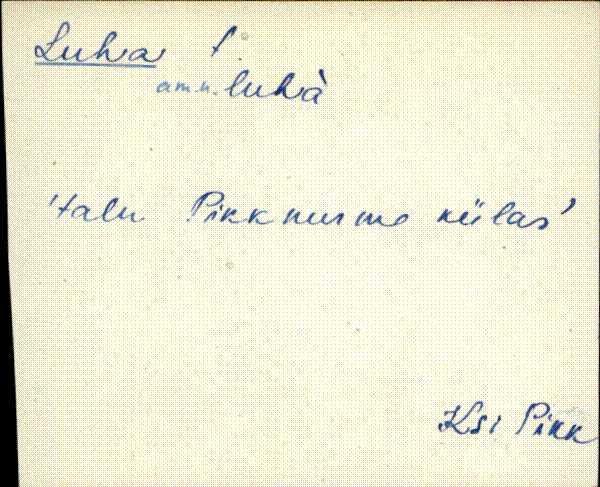 Luha t.
am.n. luhà
'talu Pikknurme külas'
Ksi Pikk